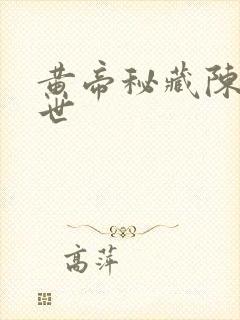 黄帝秘藏陳
世
高萍